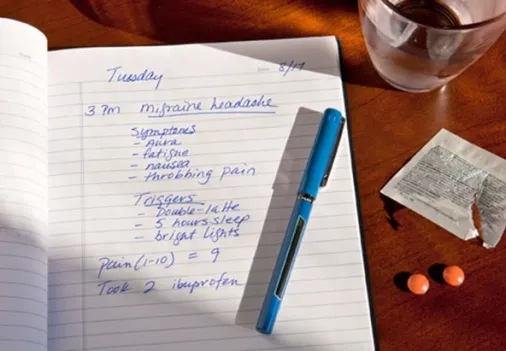 Tuesday 8/17
3 PM migraine headache
Symptoms
- Aura
- fatigue
- nausea
- throbbing pain
Triggers
- Double-latte
- 5 hours sleep
- bright lights
Pain (1-10) = 9
Took 2 ibuprofen